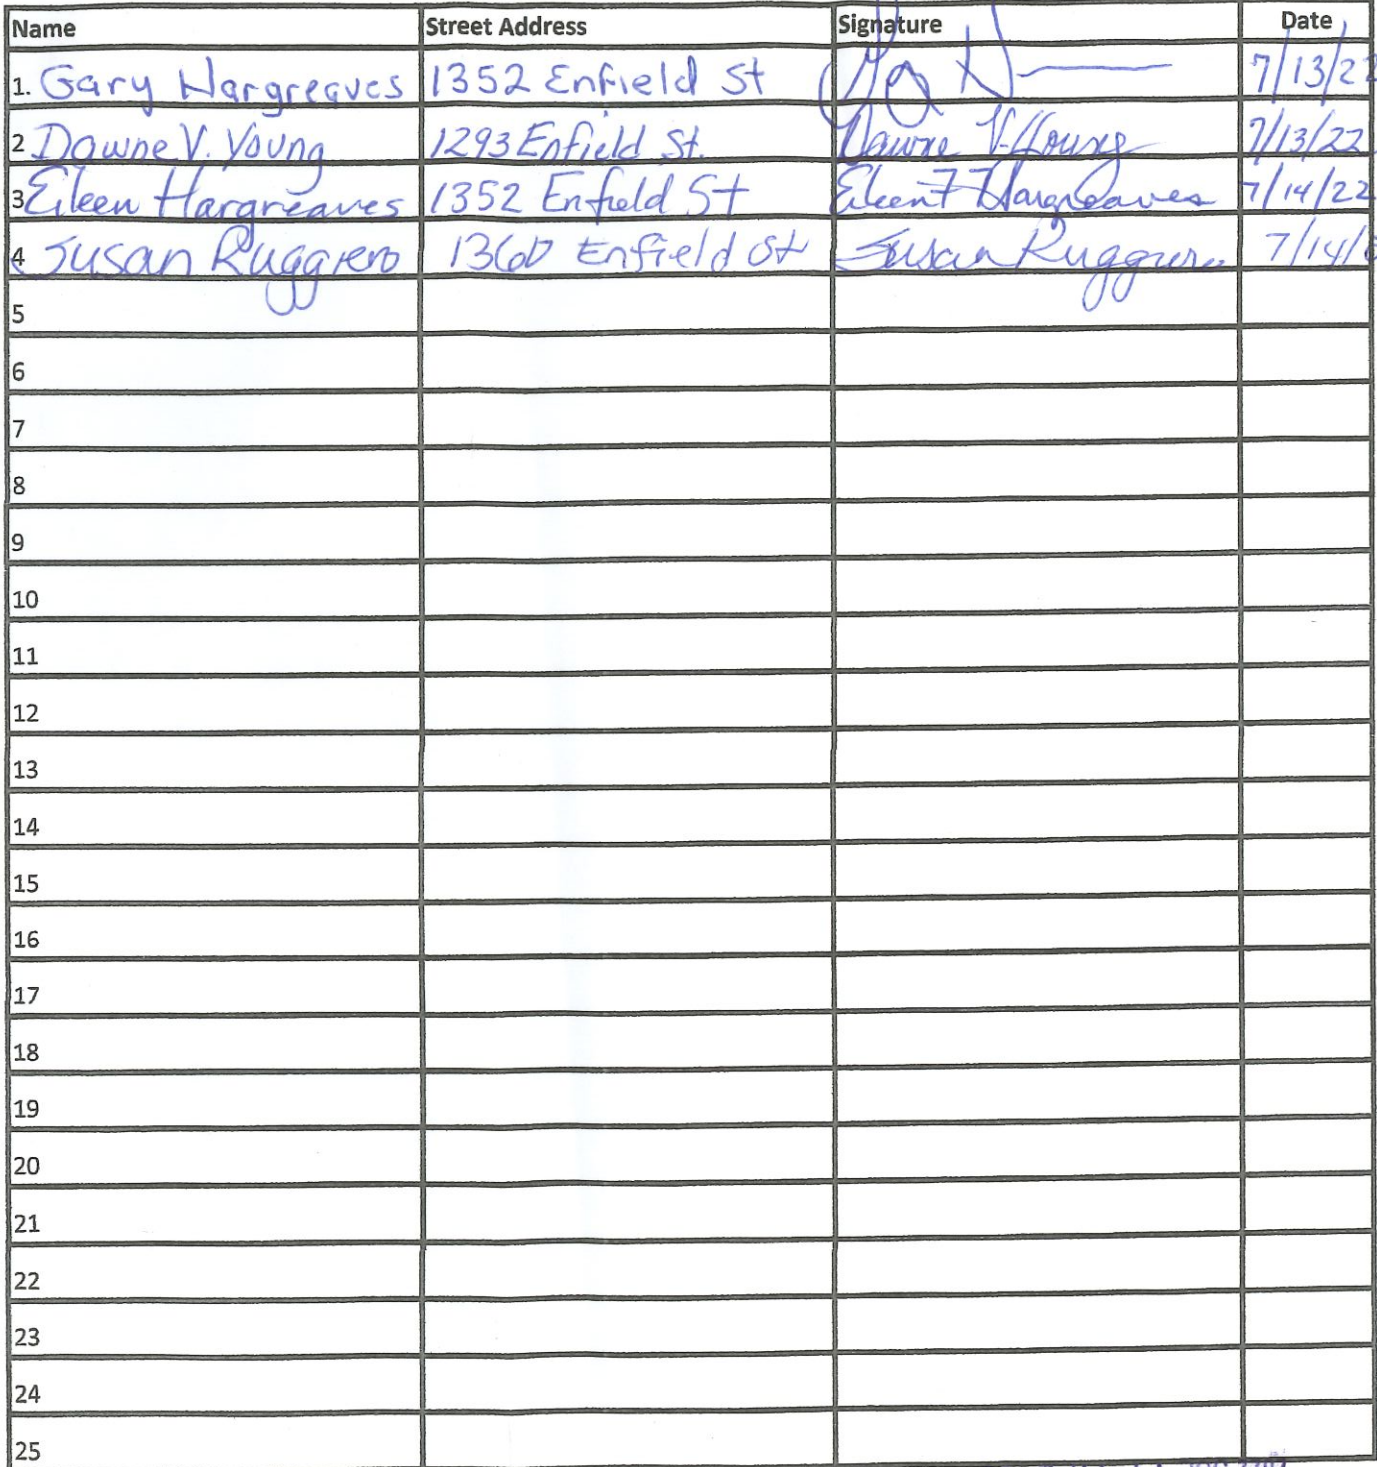 Name Street Address Signature Date
1. Gary Hargreaves 1352 Enfield St 7/13/22
2 Dawne V. Young 1293 Enfield St. Dawne V. Young 7/13/22
3 Eileen Hargreaves 1352 Enfield St Eileen F Hargreaves 7/14/22
4 Susan Ruggiero 1360 Enfield St Susan Ruggiero 7/14/
5
6
7
8
9
10
11
12
13
14
15
16
17
18
19
20
21
22
23
24
25